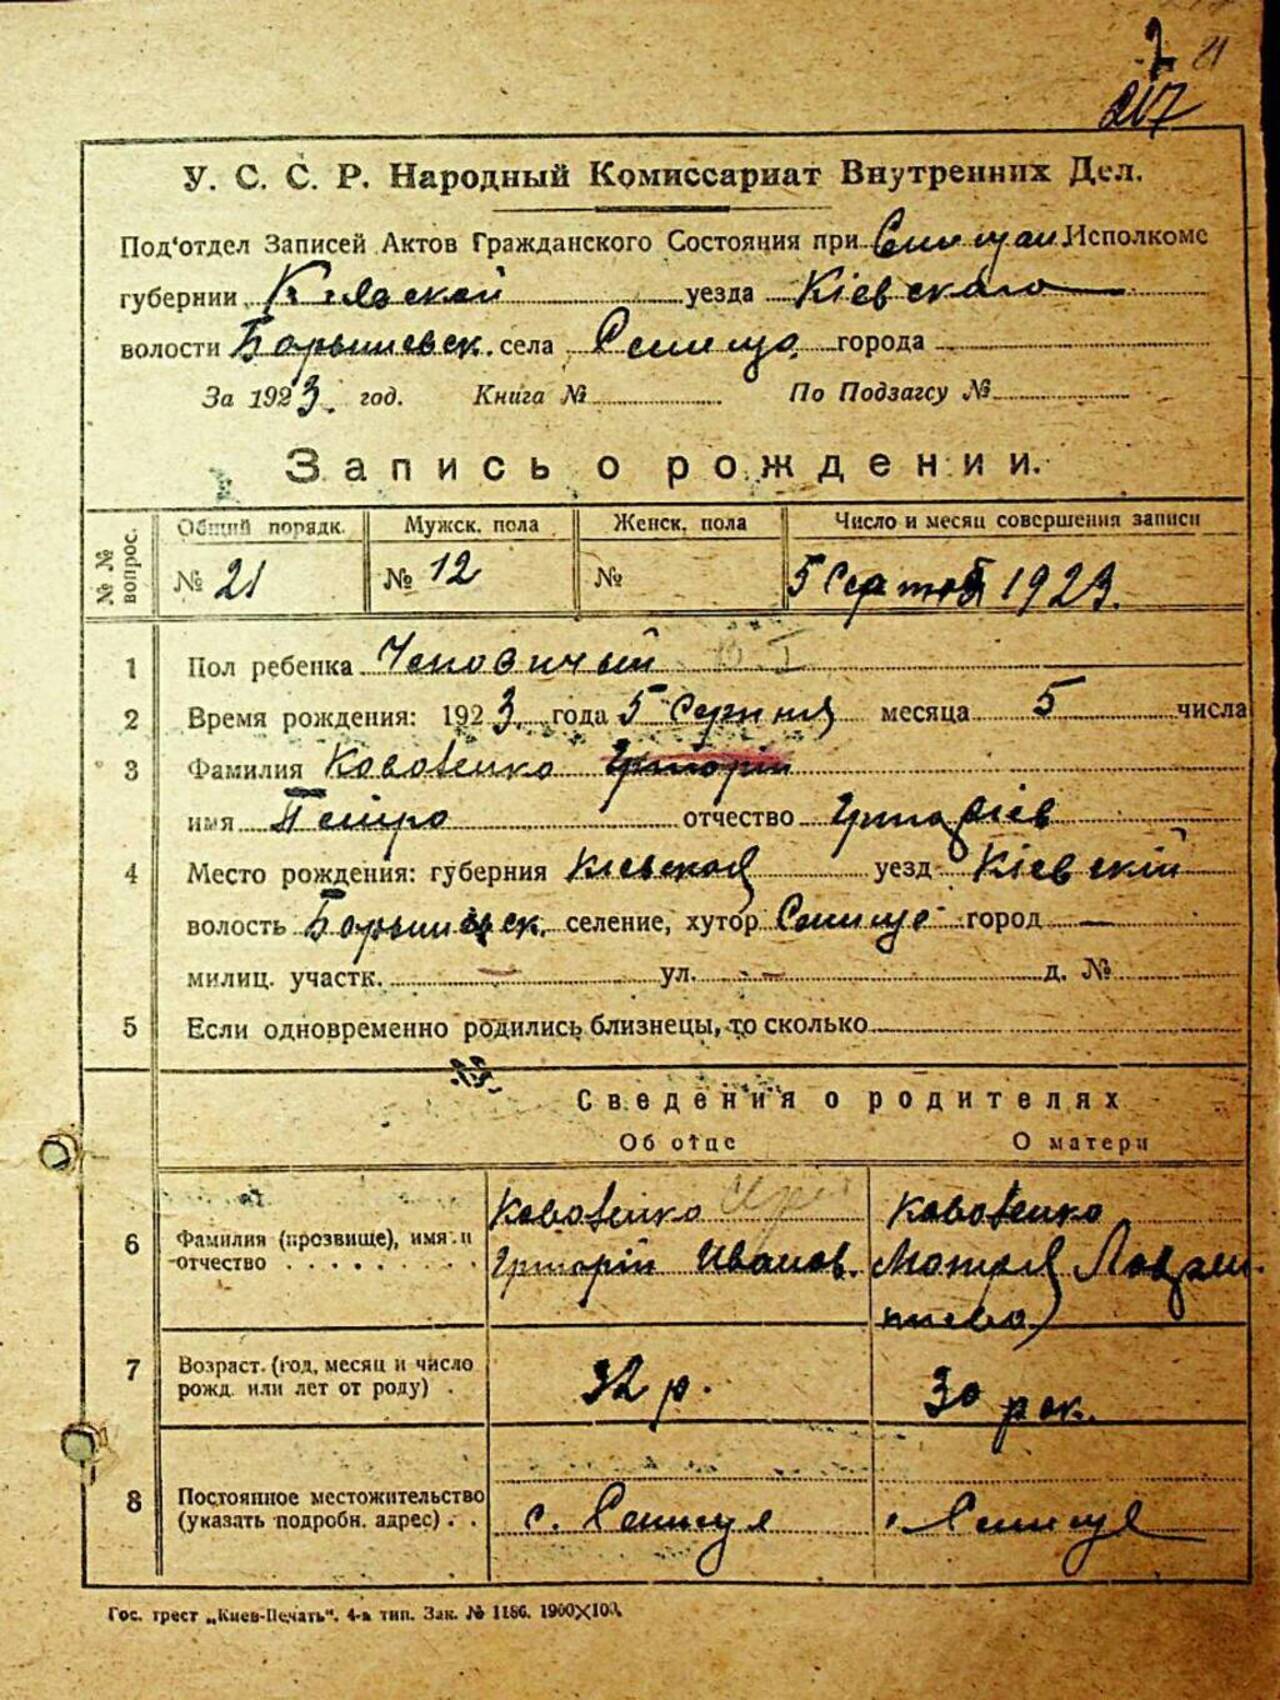 2 21
217
У. С. С. Р. Народный Комиссариат Внутренних Дел.
Под'отдел Записей Актов Гражданского Состояния при Исполкоме
губернии Киевской уезда Кіевскаго
волости Барышевск. села Селище города
За 1923. год. Книга № По Подзагсу №
Запись о рождении.
№ № вопрос. Общий порядк. Мужск. пола Женск. пола Число и месяц совершения записи
№ 21 № 12 № 5 1923.
1 Пол ребенка Чоловичый
2 Время рождения: 1923. года 5 Серпня месяца 5 числа
3 Фамилия Григорій
имя Петро отчество Григоріев
4 Место рождения: губерния Киевская уезд Кіевскій
волость Барышевск. селение, хутор Селище город —
милиц. участк. — ул. — д. №
5 Если одновременно родились близнецы, то сколько
Сведения о родителях
Об отце О матери
6 Фамилия (прозвище), имя и
отчество Григорій Иванов. Мотря
7 Возраст. (год, месяц и число
рожд. или лет от роду) . 32 р. 30 рок.
8 Постоянное местожительство
(указать подробн. адрес) . . с. Селище Селище
Гос. трест „Киев-Печать". 4-я тип. Зак. № 1186. 1900×100.